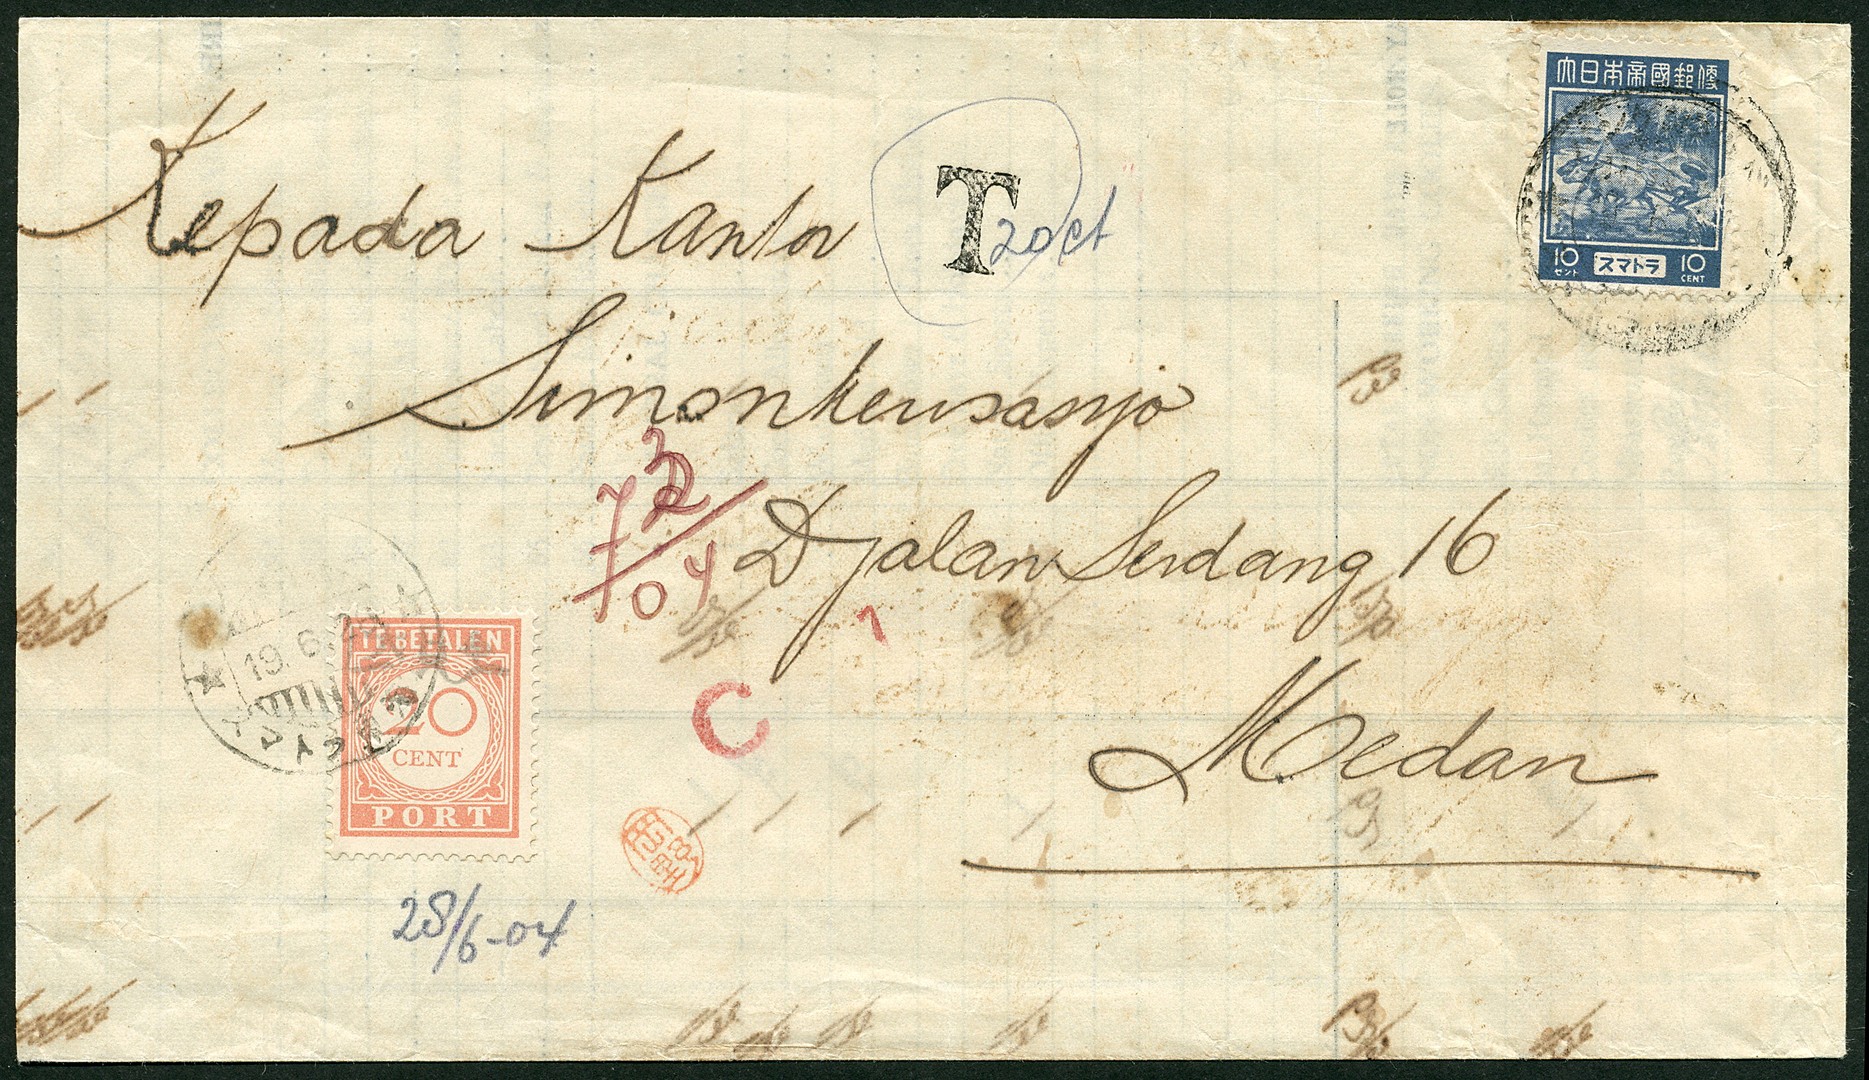 大日本帝國郵便
10 セント スマトラ 10 CENT
Kepada Kantor
T 20 ct
Simonkeusasnjo
Djalan Serdang 16
Medan
7 04
1
C
19. 6.
TE BETALEN
20
CENT
PORT
28/6-04